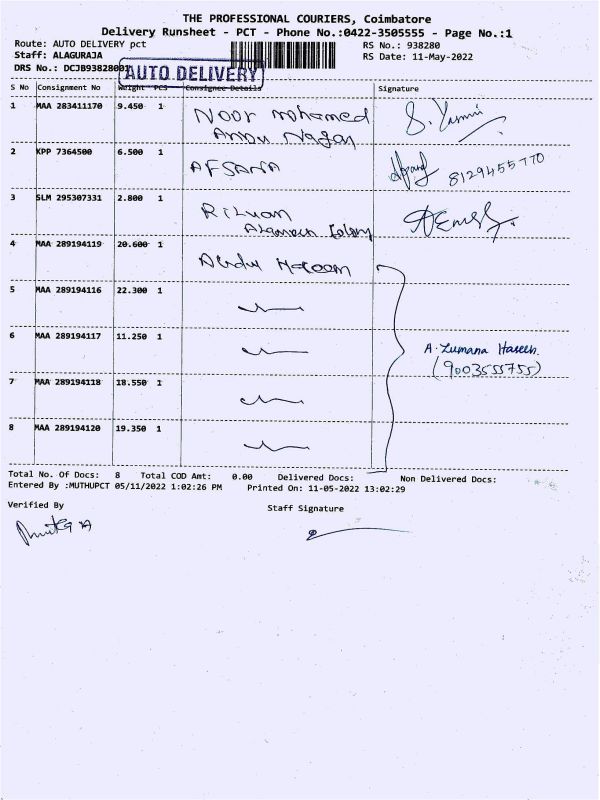 THE PROFESSIONAL COURIERS, Coimbatore
Delivery Runsheet - PCT - Phone No.:0422-3505555 - Page No.:1
Route: AUTO DELIVERY pct
RS No.: 938280
Staff: ALAGURAJA
RS Date: 11-May-2022
DRS No.: DCJB93828001
AUTO DELIVERY
S No Consignment No Weight PCS Consignee Details Signature
1 MAA 283411170 9.450 1 Noor Mohamed S. Yasmin
Annu Nagar
2 KPP 7364500 6.500 1 AFSANA 8129455770
3 SLM 295307331 2.800 1 Rizwan
Colony
4 MAA 289194119 20.600 1 Abdul Haleem
5 MAA 289194116 22.300 1
6 MAA 289194117 11.250 1 A. Lumana Haseen.
(9003555755)
7 MAA 289194118 18.550 1
8 MAA 289194120 19.350 1
Total No. Of Docs: 8 Total COD Amt: 0.00 Delivered Docs: Non Delivered Docs:
Entered By :MUTHUPCT 05/11/2022 1:02:26 PM Printed On: 11-05-2022 13:02:29
Verified By
Staff Signature